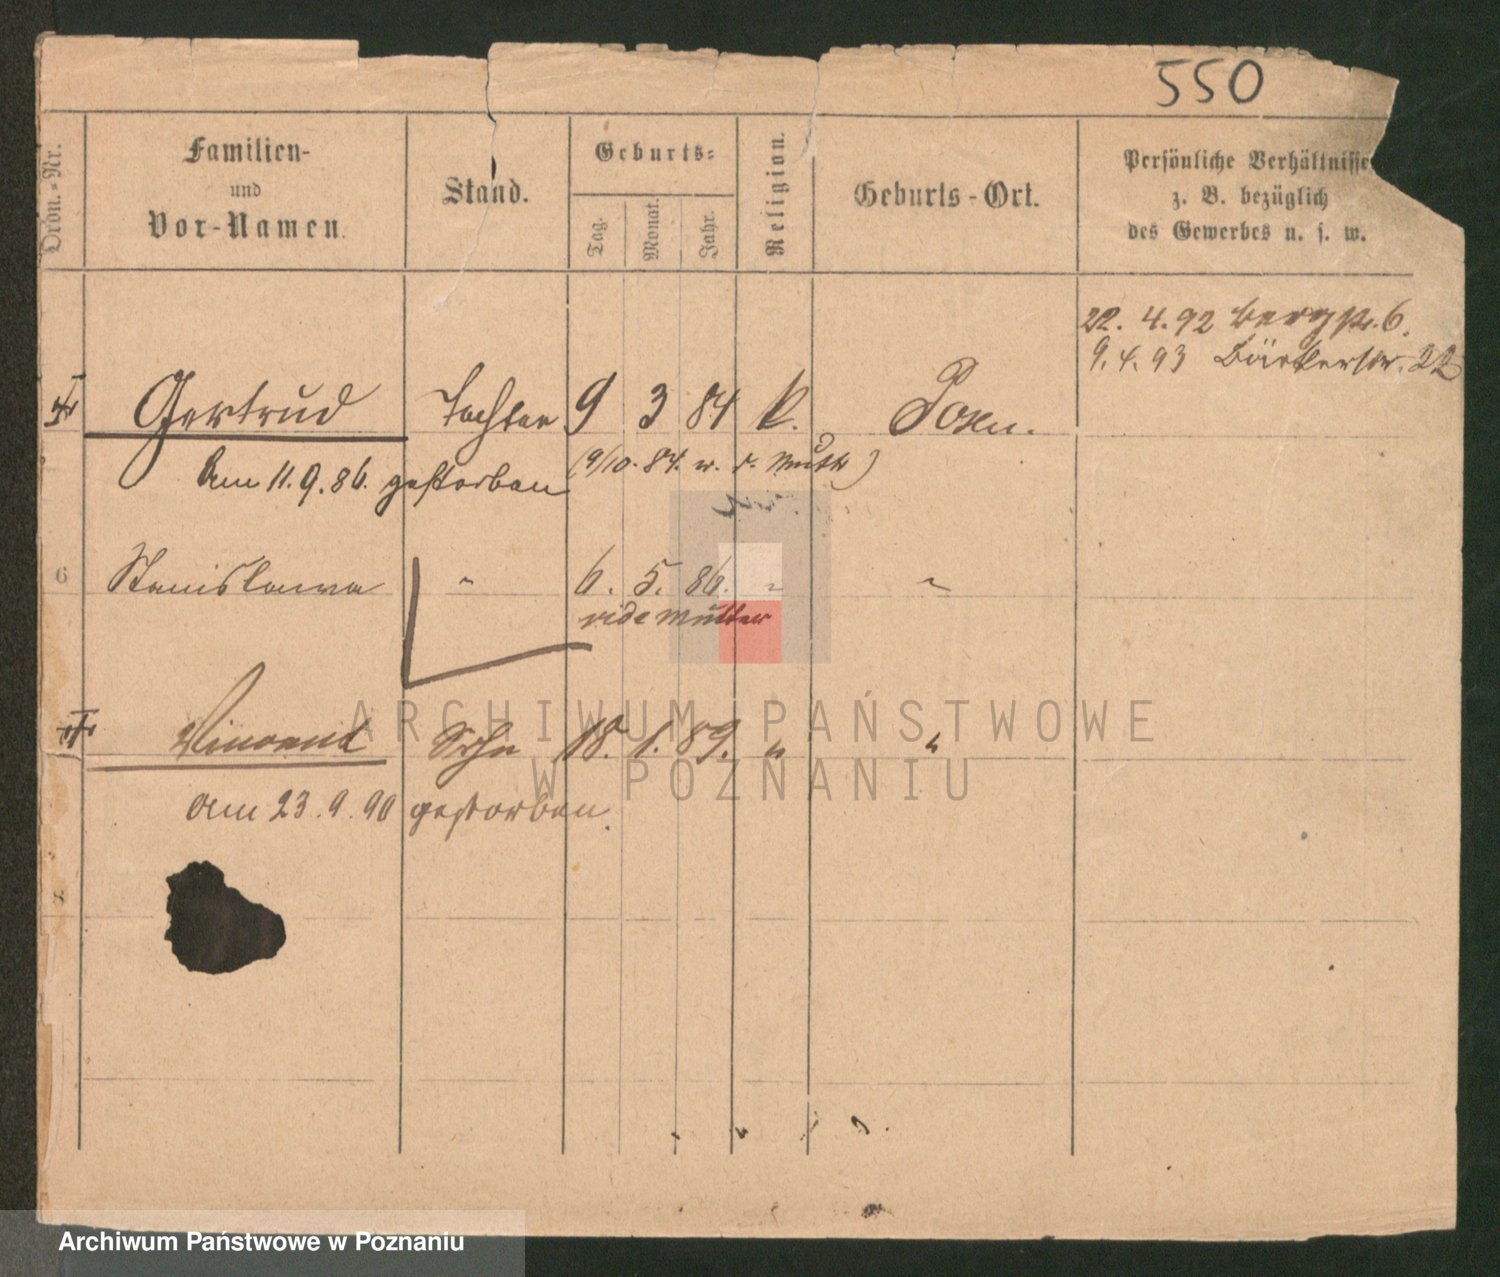 550
Ordn.-Nr.
Familien-
und
Vor-Namen.
Stand.
Geburts-
Tag.
Monat.
Jahr.
Religion.
Geburts-Ort.
Persönliche Verhältnisse
z. B. bezüglich
des Gewerbes u. s. w.
22. 4. 92 Bergstr. 6.
9. 4. 93 Bäckerstr. 22
Gertrud Tochter 9 3 84 k. Posen.
Am 11. 9. 86. gestorben (9/10. 84. w. d. Mutt)
6 Stanislawa " 6. 5. 86. " "
vide Mutter
Vincent Sohn 18. 1. 89. " "
Am 23. 9. 90 gestorben.
ARCHIWUM PAŃSTWOWE
W POZNANIU
Archiwum Państwowe w Poznaniu